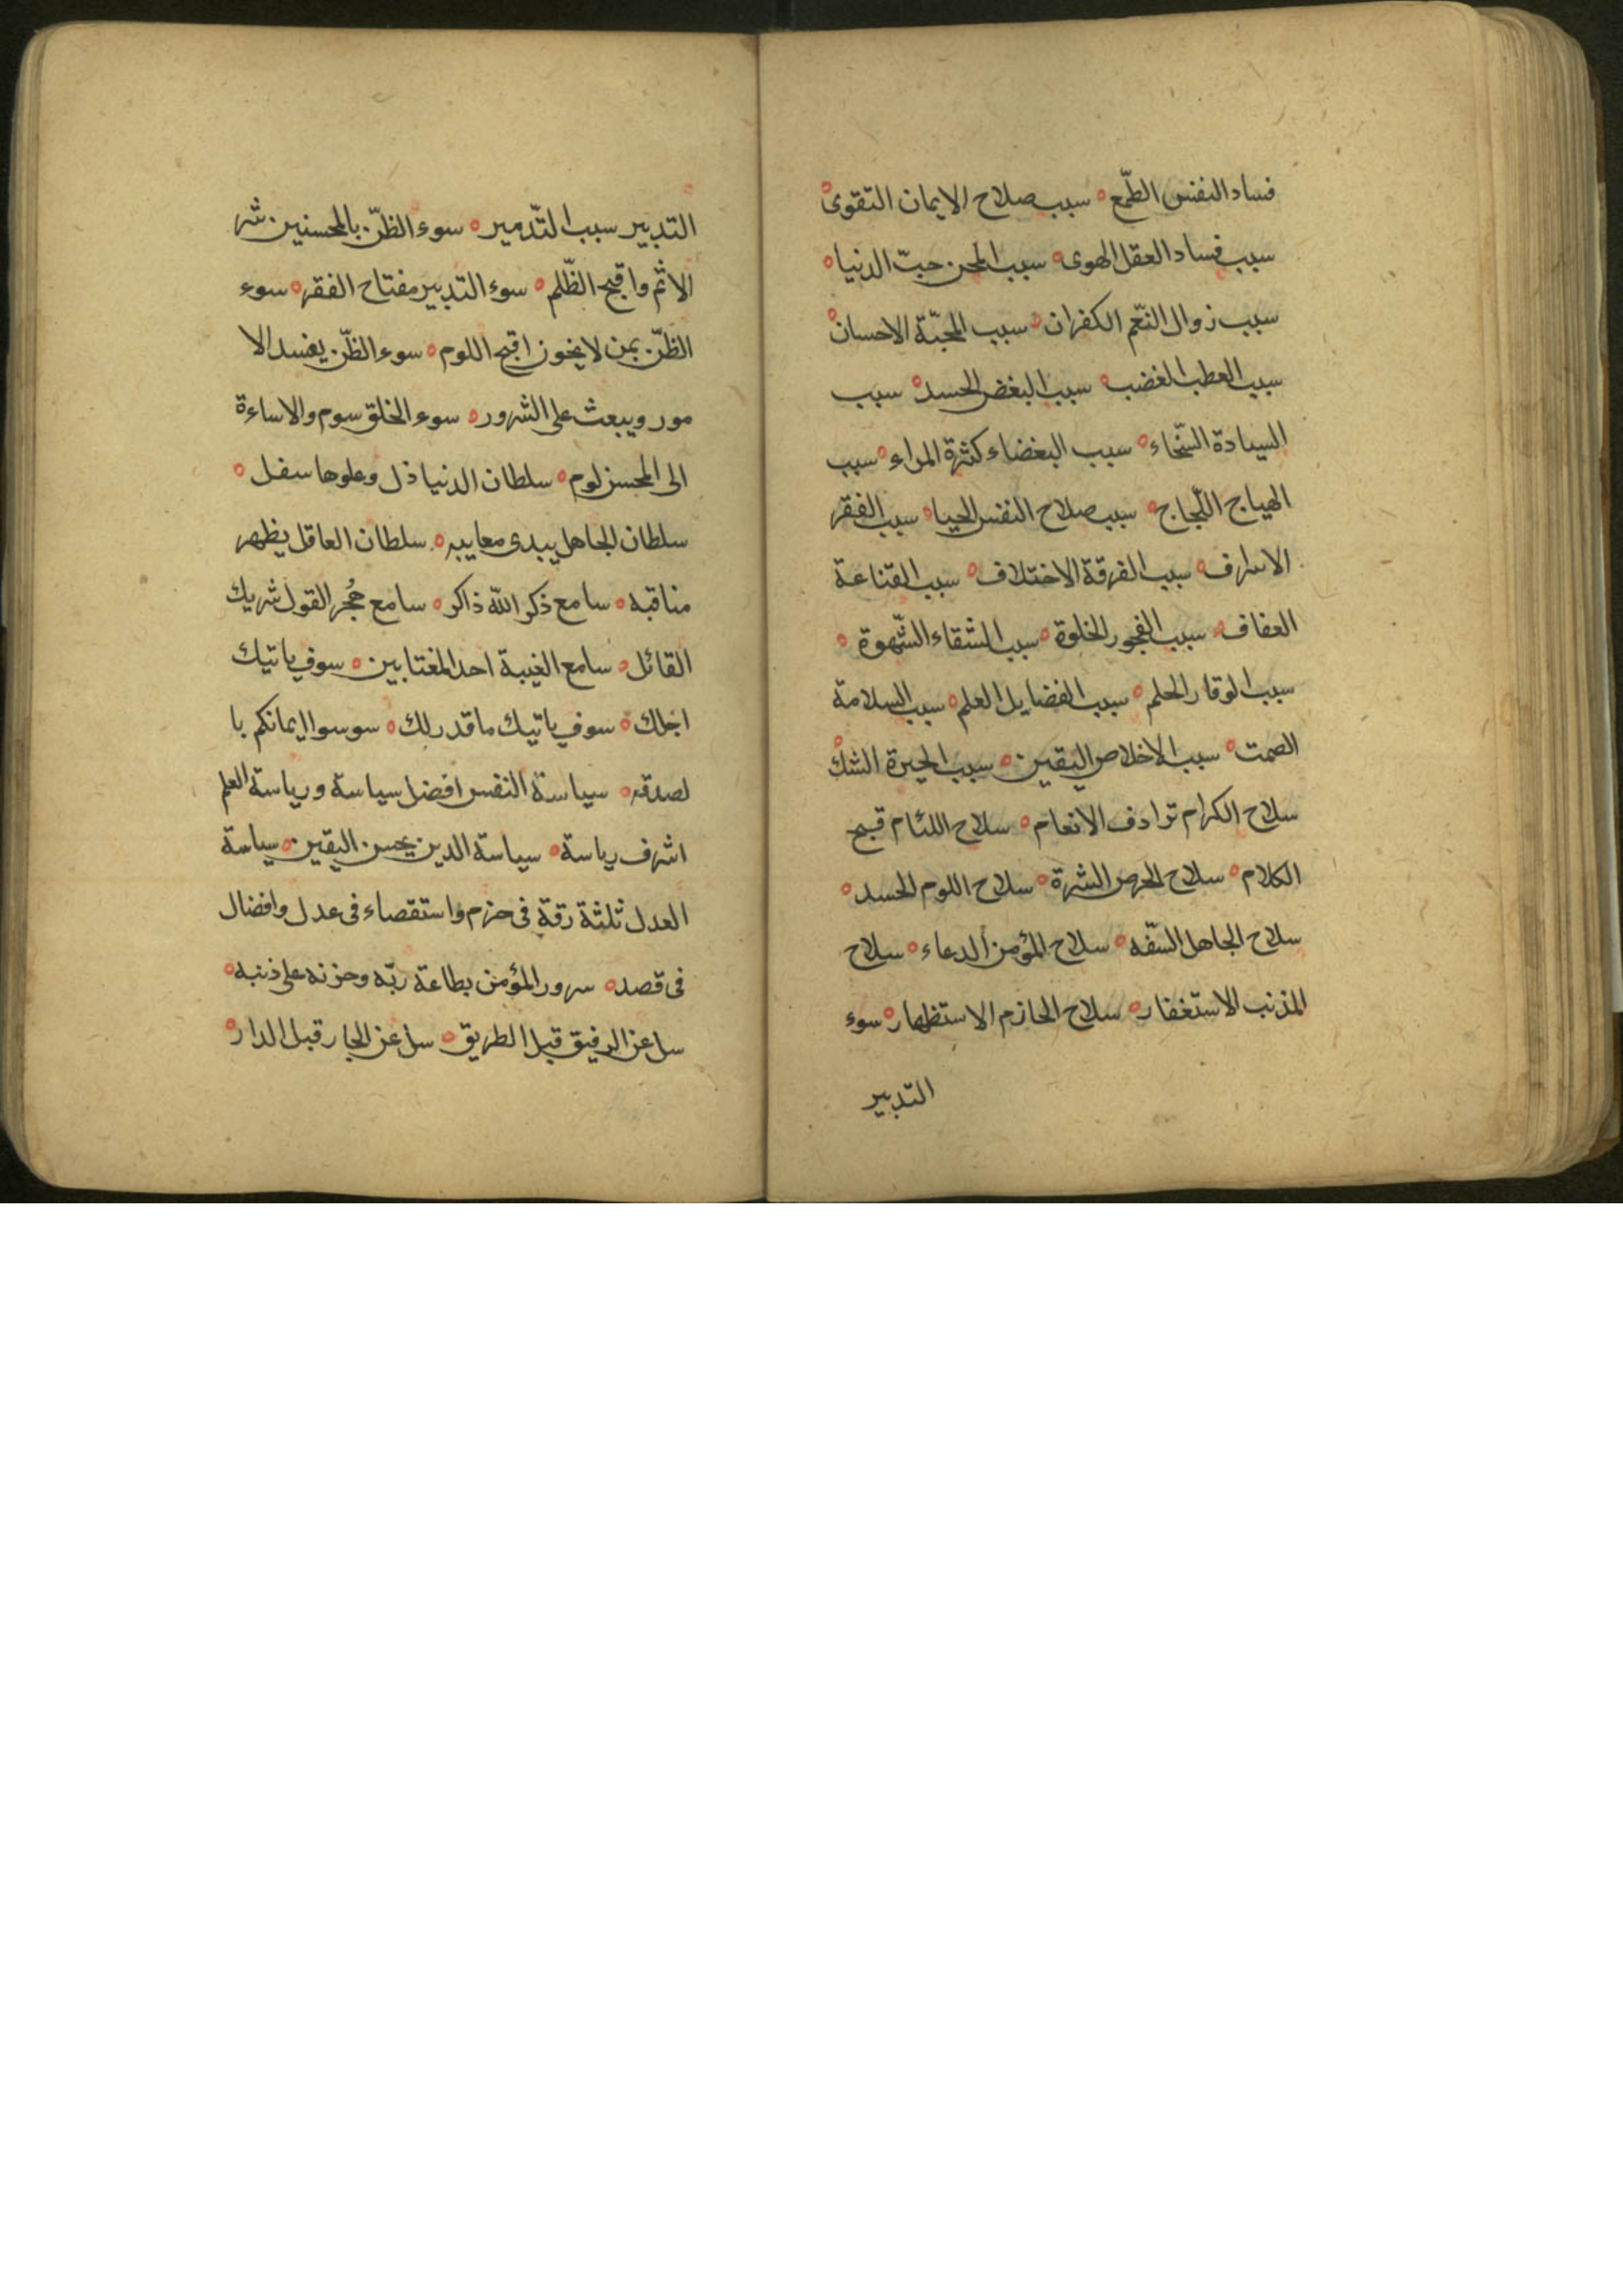 فساد النفس الطّمع ه سبب صلاح الايمان التقوى ه
سبب فساد العقل الهوى ه سبب المحن حبّ الدنيا ه
سبب زوال النعّم الكفران ه سبب المحبّة الاحسان ه
سبب العطب الغضب ه سبب البغض الحسد ه سبب
السيادة السّخاء ه سبب البغضاء كثرة المراء ه سبب
الهياج اللّجاج ه سبب صلاح النفس الحيا ه سبب الفقر
الاسراف ه سبب الفرقة الاختلاف ه سبب القناعة
العفاف ه سبب الفجور الخلوة ه سبب الشقاء الشّهوة ه
سبب الوقار الحلم ه سبب الفضايل العلم ه سبب السلامة
الصمت ه سبب الاخلاص اليقين ه سبب الحيرة الشك ه
سلاح الكرام ترادف الانعام ه سلاح اللئام قبح
الكلام ه سلاح الحرص الشرة ه سلاح اللوم الحسد ه
سلاح الجاهل السّفه ه سلاح المؤمن الدعاء ه سلاح
المذنب الاستغفار ه سلاح الحازم الاستظهار ه سوء
التدبير
التدبير سبب التّدمير ه سوء الظنّ بالمحسنين شر
الاثم واقبح الظّلم ه سوء التدبير مفتاح الفقر ه سوء
الظنّ بمن لا يخون اقبح اللوم ه سوء الظنّ يفسد الا
مور ويبعث على الشرور ه سوء الخلق سوم والاساءة
الى المحسن لوم ه سلطان الدنيا ذل وعلوها سفل ه
سلطان الجاهل يبدى معايبه ه سلطان العاقل يظهر
مناقبه ه سامع ذكر الله ذاكر ه سامع هُجر القول شريك
القائل ه سامع الغيبة احد المغتابين ه سوف ياتيك
اجلك ه سوف ياتيك ما قدر لك ه سوسوا ايمانكم با
لصدقه ه سياسة النفس افضل سياسة ورياسة العلم
اشرف رياسة ه سياسة الدين بحسن اليقين ه سياسة
العدل ثلثة رقة فى حزم واستقصاء فى عدل وافضال
فى قصد ه سرور المؤمن بطاعة ربّه وحزنه على ذنبه ه
سل عن الرفيق قبل الطريق ه سل عن الجار قبل الدار ه